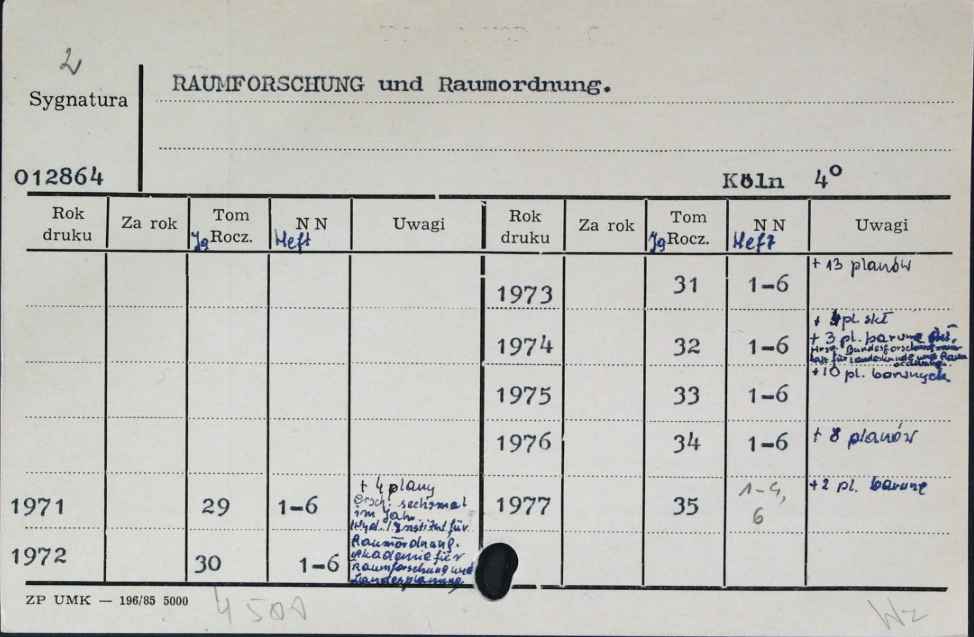 2
Sygnatura
RAUMFORSCHUNG und Raumordnung.
012864
Köln 4°
Rok druku Za rok Tom Jg Rocz. NN Heft Uwagi Rok druku Za rok Tom Jg Rocz. NN Heft Uwagi
1973 31 1-6 + 13 planów
1974 32 1-6 + pl. skł
+ 3 pl. barwne
Hrsg. Bundesforschung
für Landeskunde und Raum
ordnung.
1975 33 1-6 + 10 pl. barwnych
1976 34 1-6 + 8 planów
1971 29 1-6 + 4 plany
Ersch. sechsmal
im Jahr.
Wyd. Institut für
Raumordnung.
Akademie für
Raumforschung und
Landesplanung
1977 35 1-4, 6 + 2 pl. barwne
1972 30 1-6
ZP UMK — 196/85 5000
4 501
Wz